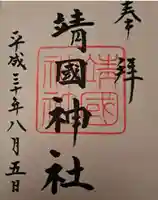 奉拝
靖國神社
平成三十年八月五日
靖國神社